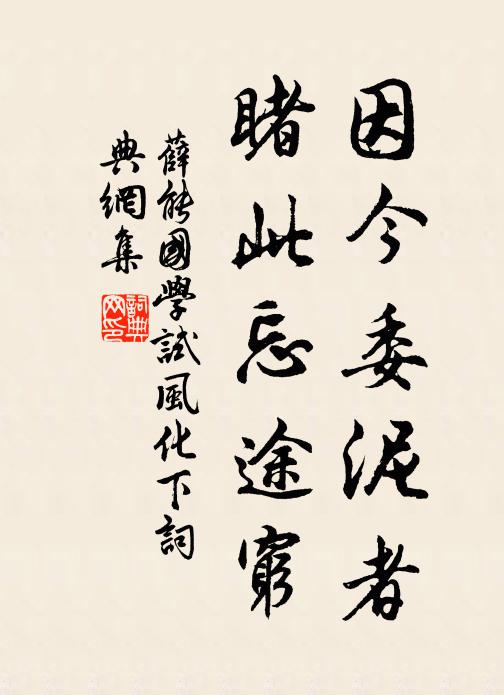 因今委泥者
睹此忘途窮
薛能國學試風化下詞
典網集
詞典網印